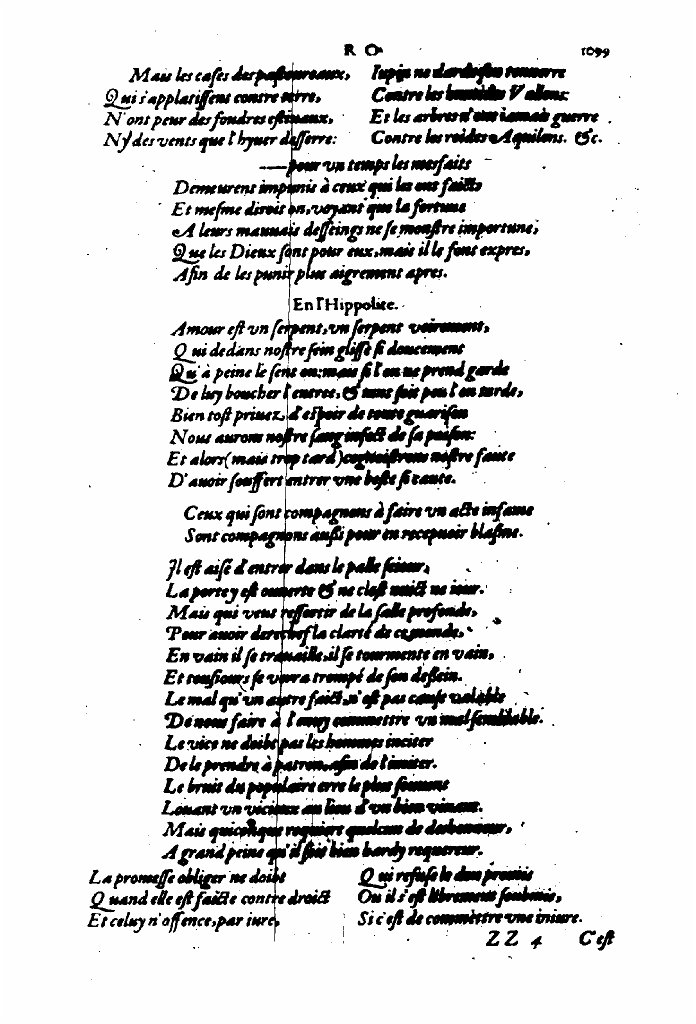 R O
1099
Mais les cases des pastoureaux,
Qui s'applatissent contre terre,
N'ont peur des foudres estivaux,
Ny des vents que l'hyuer desserre:
Iupin ne darde son tonnerre
Contre les Vallons:
Et les arbres n'ont iamais guerre
Contre les roides Aquilons. &c.
—pour vn temps les mesfaits
Demeurent impunis à ceux qui les ont faicts,
Et mesme diroit on, voyant que la fortune
A leurs mauuais desseings ne se monstre importune,
Que les Dieux sont pour eux, mais il le font expres,
Afin de les punir plus aigrement apres.
En l'Hippolite.
Amour est vn serpent, vn serpent voirement,
Qui dedans nostre sein glisse si doucement
Qu'à peine le sent on: mais si l'on ne prend garde
De luy boucher l'entree, & tant soit peu l'on tarde,
Bien tost priuez d'espoir de toute guarison
Nous aurons nostre sang infect de sa poison:
Et alors (mais trop tard) cognoistrons nostre faute
D'auoir souffert entrer vne beste si caute.
Ceux qui sont compagnons à faire vn acte infame
Sont compagnons aussi pour en recepuoir blasme.
Il est aisé d'entrer dans le palle seiour,
La porte y est ouuerte & ne clost nuict ne iour.
Mais qui veut ressortir de la salle profonde,
Pour auoir derechef la clarté de ce monde,
En vain il se trauaille, il se tourmente en vain,
Et tousiours se verra trompé de son dessein.
Le mal qu'vn autre faict, n'est pas cause valable
De nous faire à l'enuy commettre vn mal semblable.
Le vice ne doibt pas les hommes inciter
De le prendre à patron, afin de l'imiter.
Le bruit du populaire erre le plus souuent
Louant vn vicieux au lieu d'vn bien viuant.
Mais quiconque requiert quelcun de deshonneur,
A grand peine qu'il soit bien hardy requereur.
La promesse obliger ne doibt
Quand elle est faicte contre droict
Et celuy n'offence, par iure,
Qui refuse le don promis
Ou il s'est librement soubmis,
Si c'est de commettre vne iniure.
ZZ 4
C'est